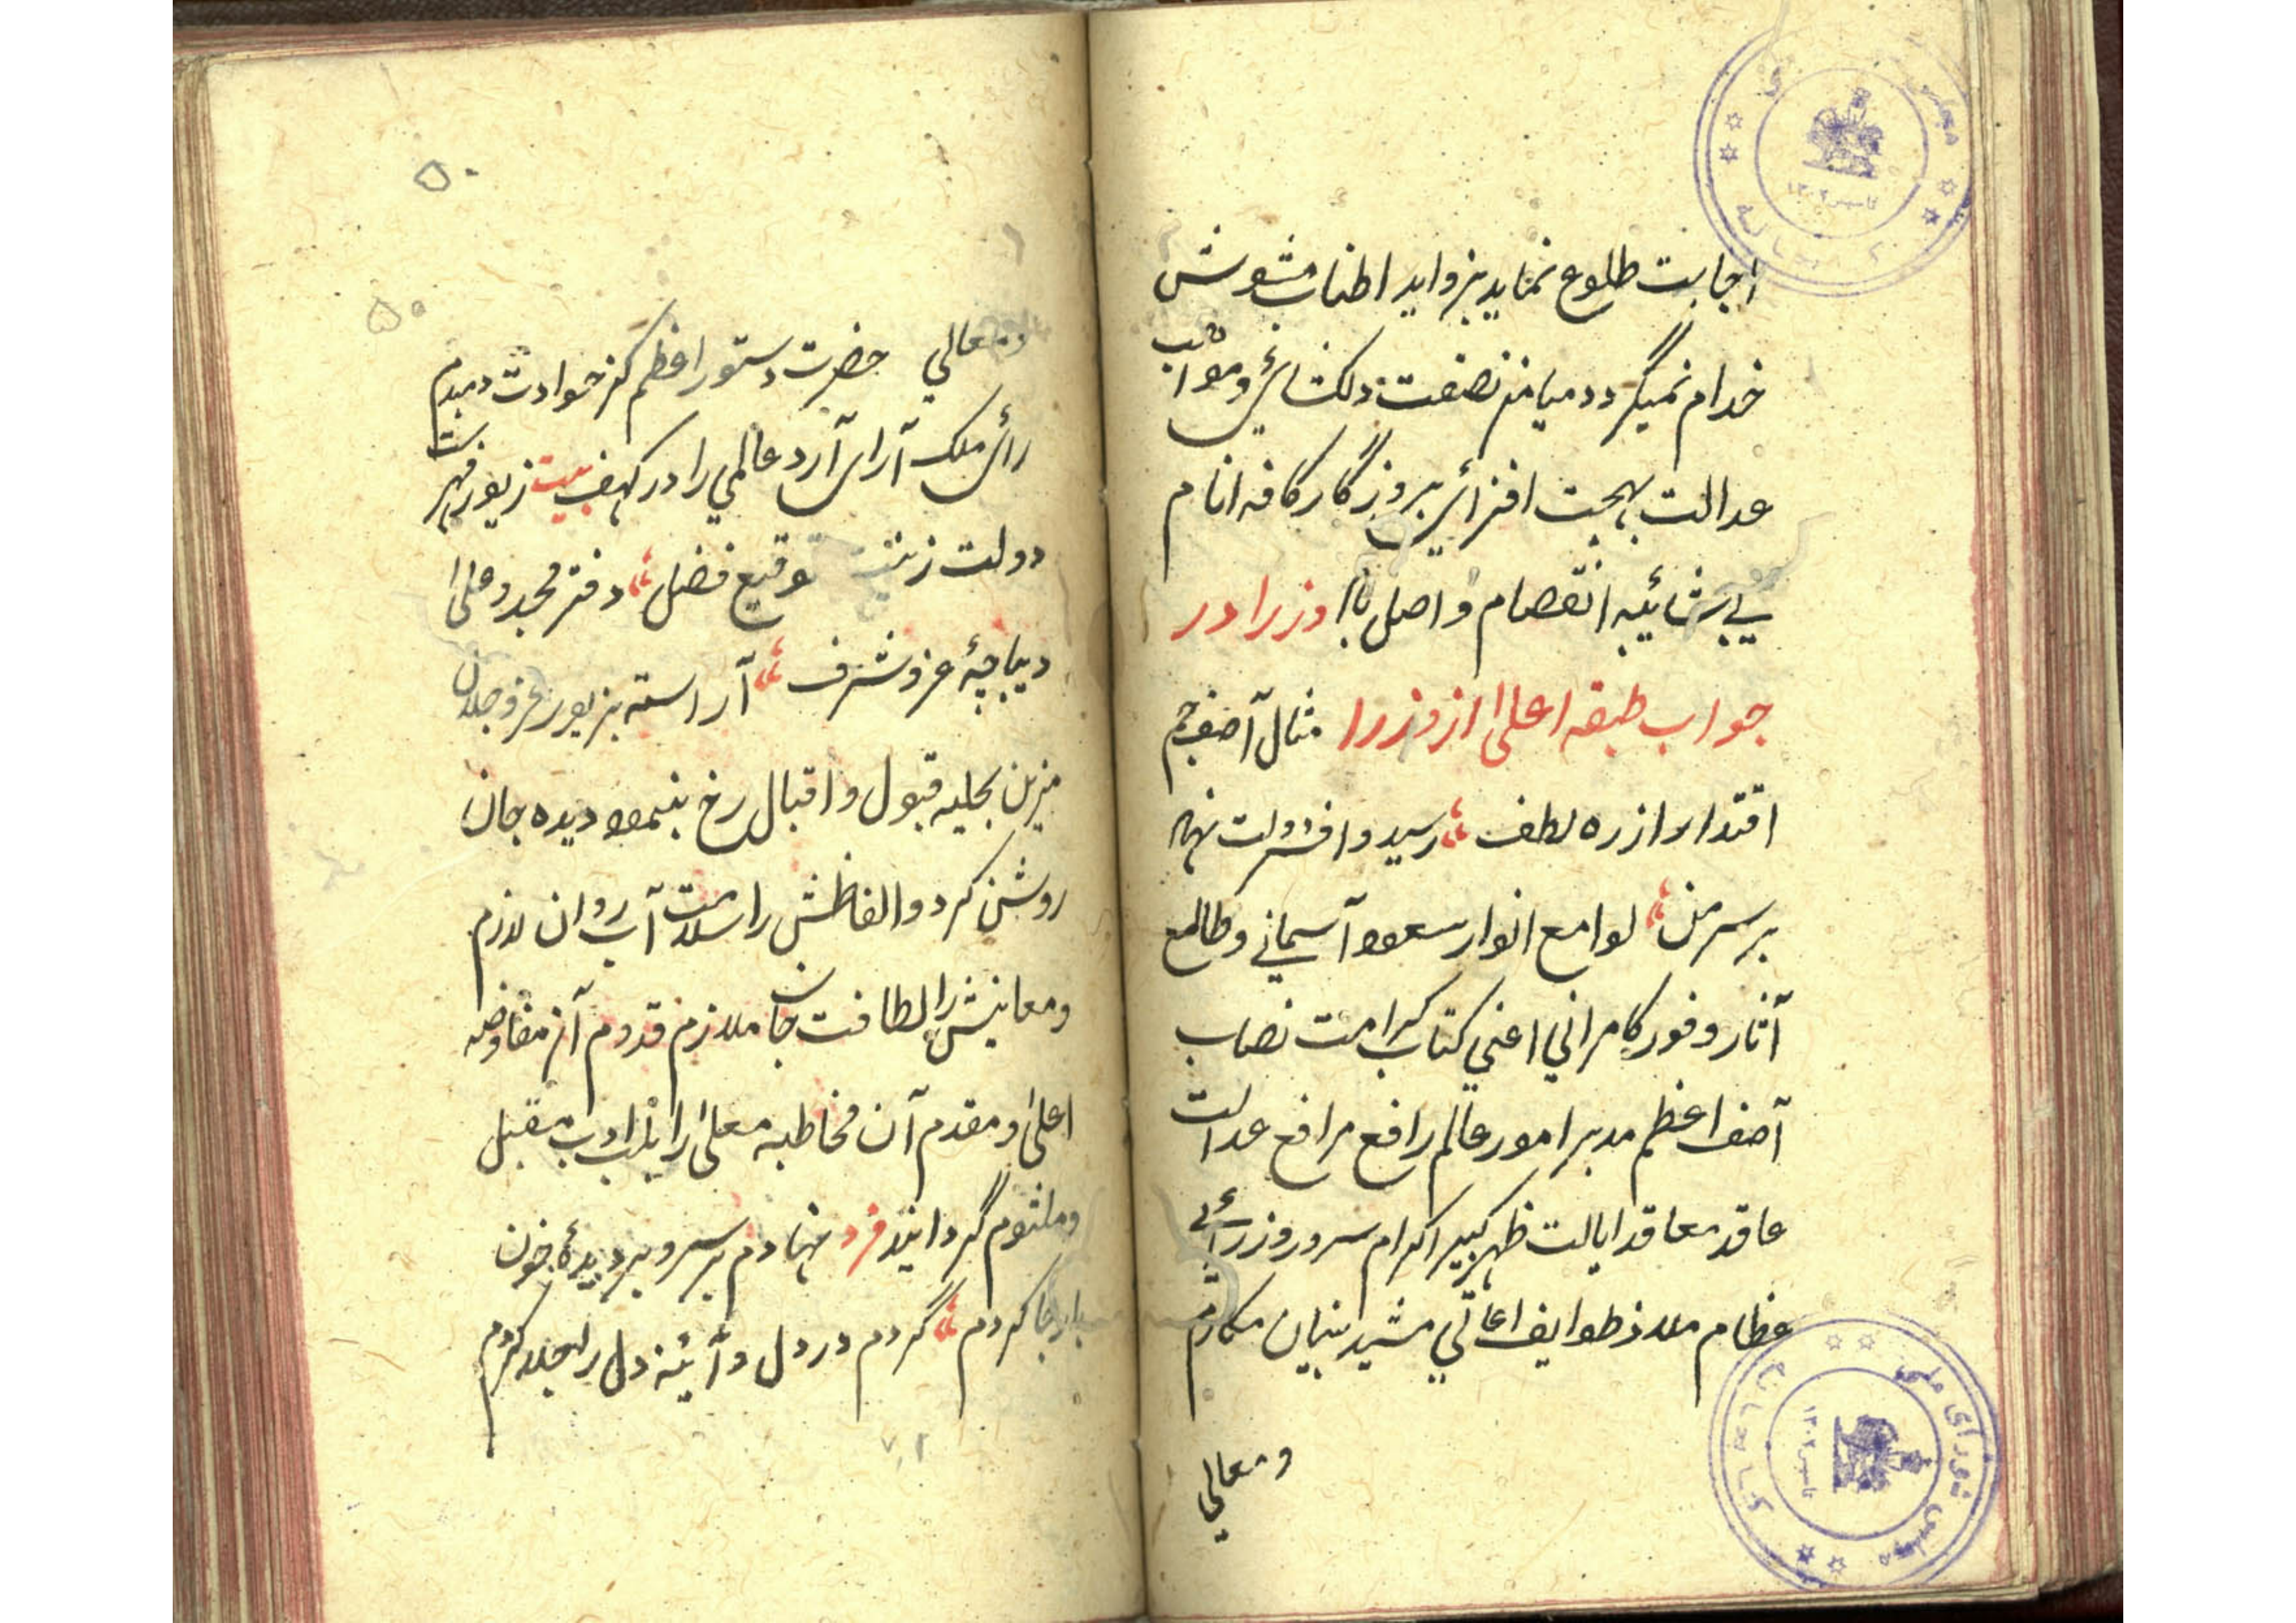 اجابت طلوع نماید بزواید اطناب مشوش
خدام نمیگردد میامن نصفت دلکشای ومواهب
عدالت بهجت افزای بروزگار کافه انام
بی شائبه انفصام واصل باا وزرا در
جواب طبقه اعلی از وزرا مثال آصف جم
اقتدار از ره لطف رسید وافسر دولت نهاد
بر سر من لوامع انوار سعود آسمانی وطالمع
آثار وفور کامرانی اعنی کتاب کرامت نصاب
آصف اعظم مدبر امور عالم رافع مرافع عدالت
عاقد معاقد ایالت ظهر کبیر اکرام سرور وزرائی
عظام ملاذ طوایف اعالی مشید بنیان مکارم
ومعالی
۵۰
۵۰
ومعالی حضرت دستور اعظم کز حوادث دمبدم
رأی ملک آرای آرد عالمی را در کهف بیت زیور فهرست
دولت زینت توقیع فضل دفتر مجد وعلی
دیباچهٔ عز وشرف آراسته بزیور عز وجلال
مزین بحلیه قبول واقبال رخ بنمود دیده جان
روشن کرد والفاظش را سلاست آب روان لازم
ومعانیش را لطافت جان ملازم قدوم آن مفاوضه
اعلی ومقدم آن مخاطبه معلی را بلب ادب مقبل
وملثوم گردانید فرد نهادم بر سر وبر دیدهٔ خون
بار جا کردم گردم در دل وآئینه دل را جلا کردم
مجلس شورای ملی
کتابخانه
تاسیس ۱۳۰۲